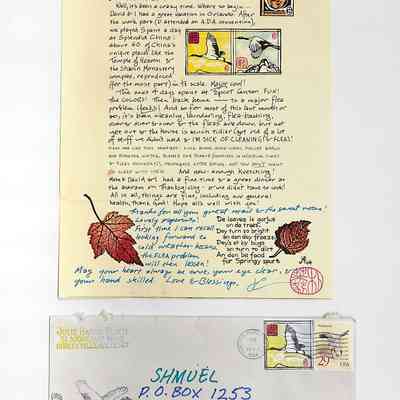 Well, it's been a crazy time. Where to begin –
David & I had a great vacation in Orlando. After
the work part (D attended an A.D.A. convention),
we played! Spent a day
at Splendid China:
about 60 of China's
unique places like the
Temple of Heaven &
the Shaolin Monastery
complex, reproduced
(for the most part) in ⅓ scale. Major cool!
The next 4 days spent at Epcot Center. Fun!
the colors! Then back home — to a major flea
problem (yeeks!) And so for most of this last month or
so, it's been cleaning, laundering, flea-bathing,
over & over & over & the fleas are down, but not
yet out & the house is much tidier (got rid of a lot
of stuff we didn't need) & I'M SICK OF CLEANING & FLEAS!
to sleep with them. And now - enough kvetching!
David and I had a fine time & a great dinner at
on Thanksgiving - & we didn't have to cook!
All in all, things are fine, including our general
health, thank God! Hope all's well with you!
Thanks for all your great mail & the sweet notes!
Lovely papers!
First time I can recall
looking forward to
cold weather because
the FLEA problem
will then lessen!
De leaves is gorjus
on de trees.
Dey turn so bright
an den day freeze
Dey's et by bugs
an turn to dirt
An den be food
fur Springy spurts
May your heart always be sure, your eye clear, &
your hand skilled. Love & Blessings,
29
USA
SHMUEL
P.O. BOX 1253